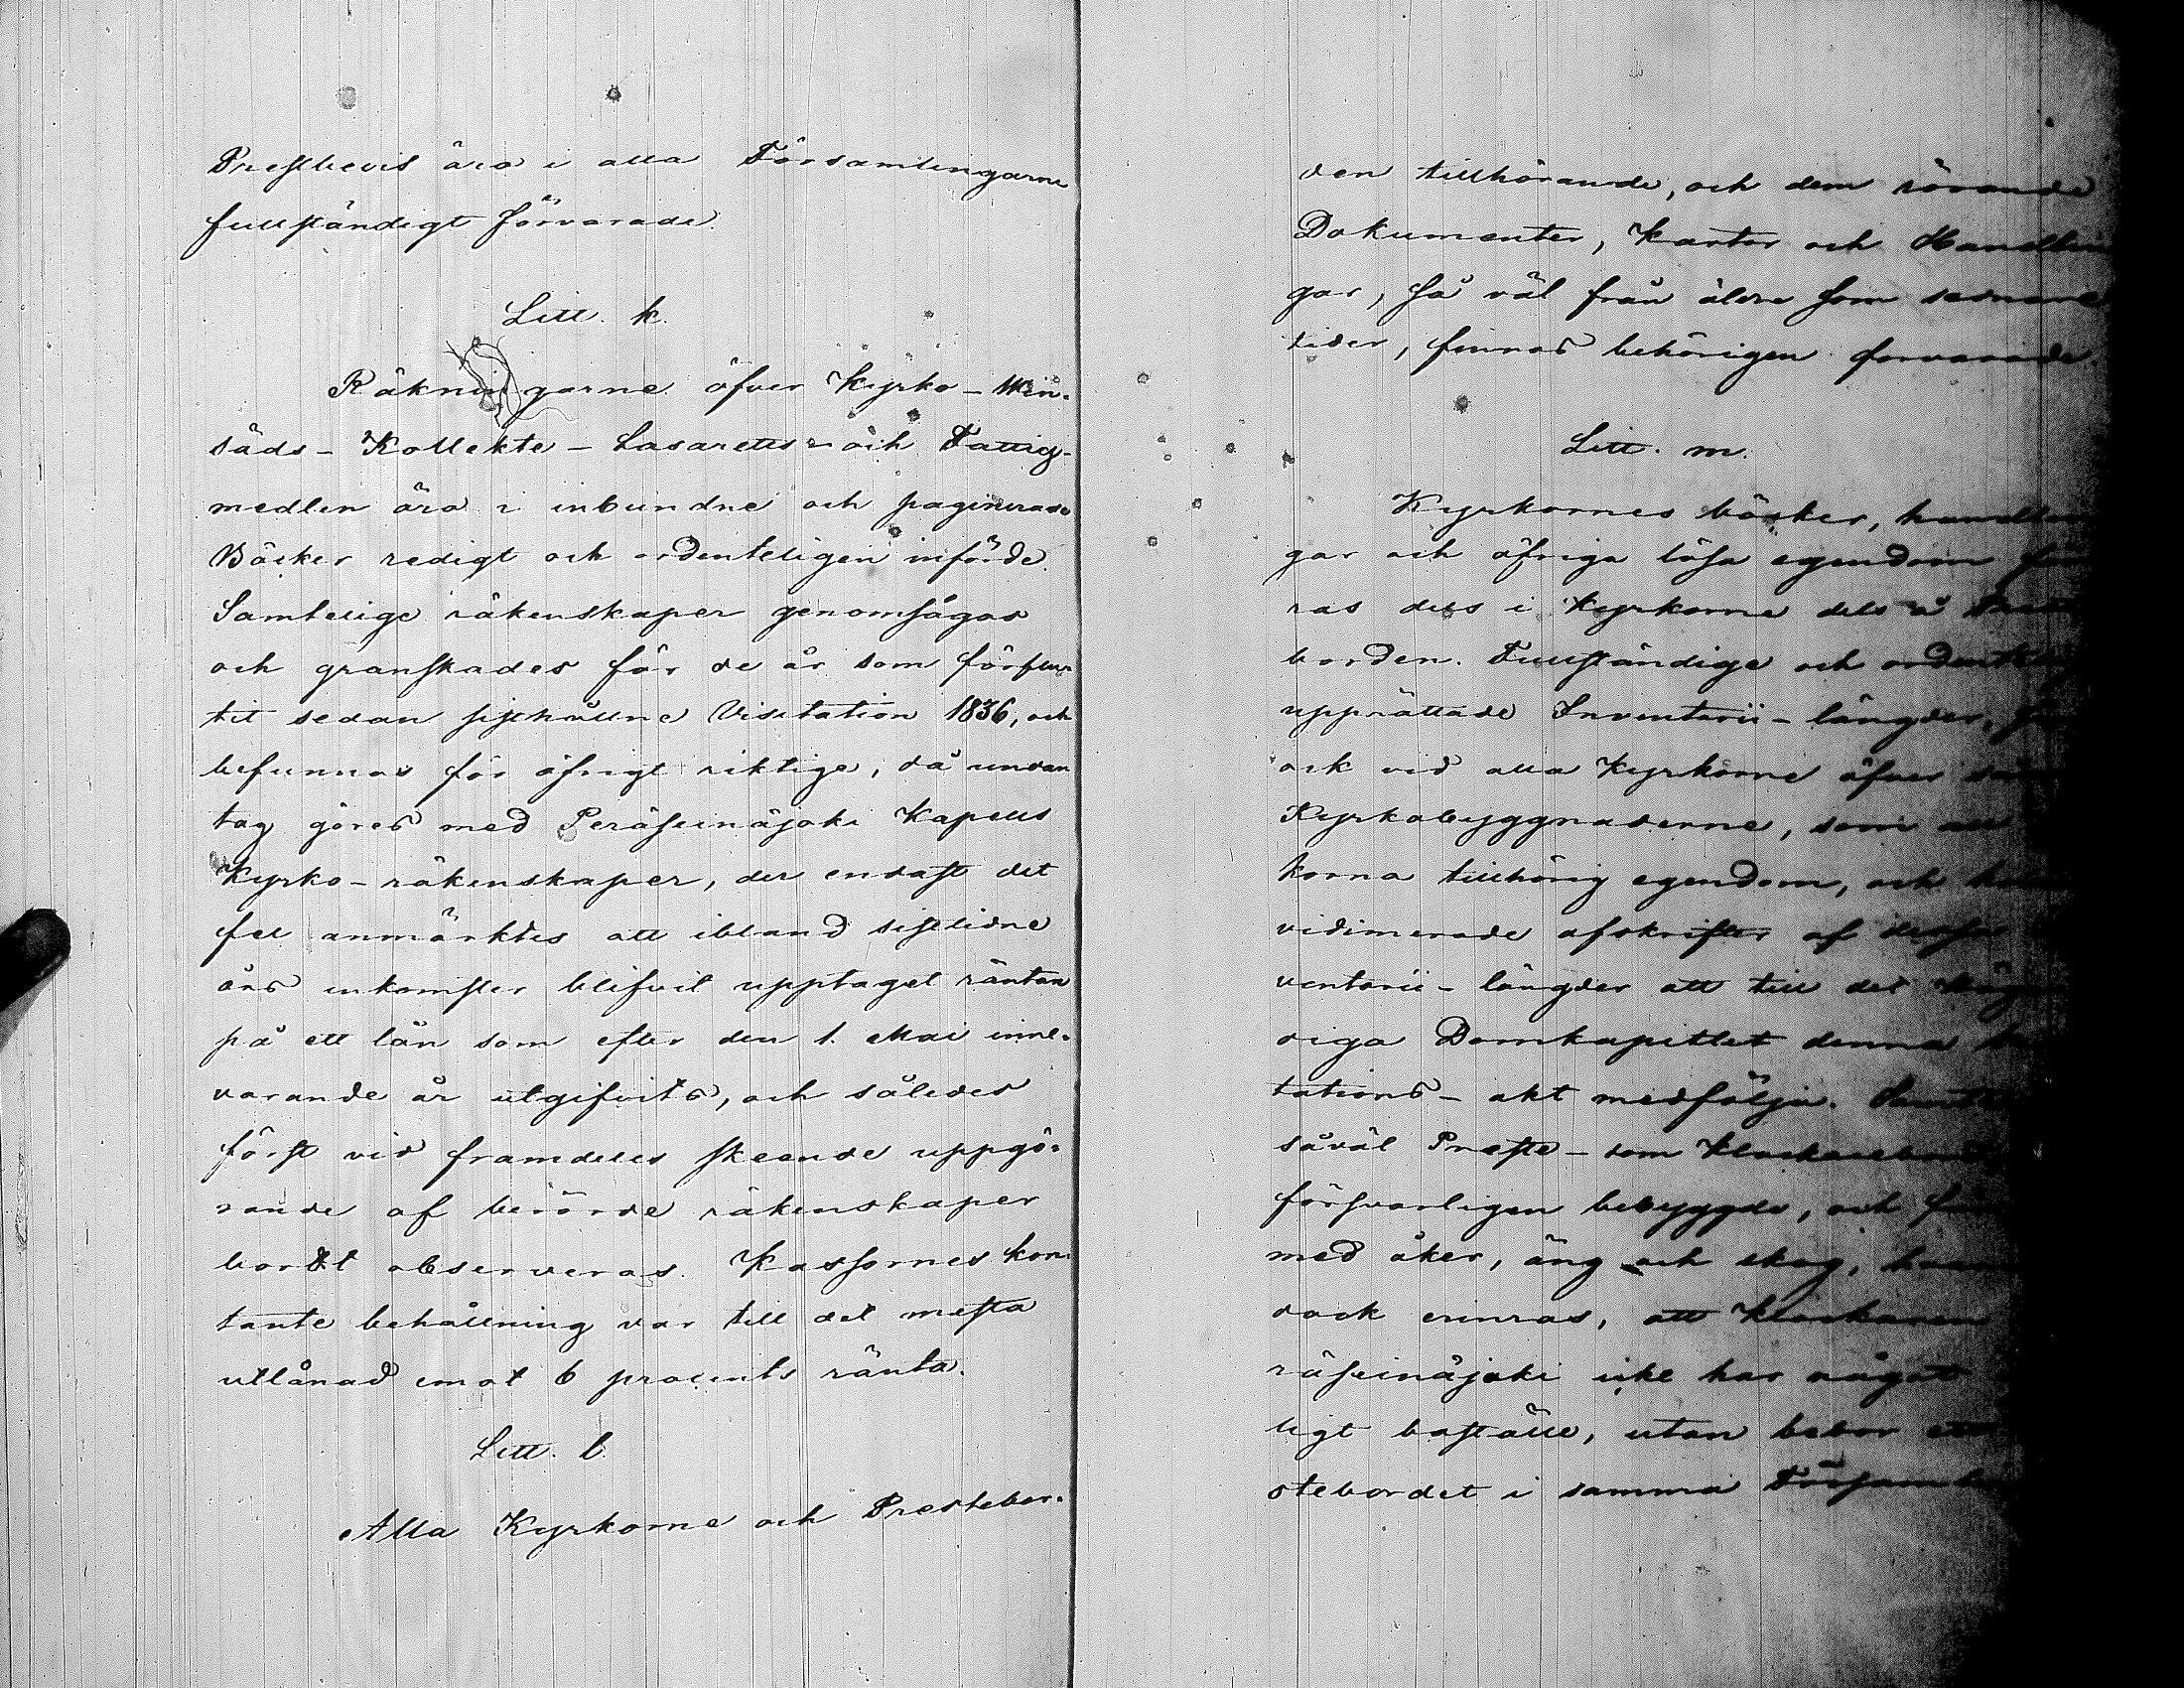 Prestbevis äro i alla Församlingarne
fullständigt förvarade.
Litt. k.
Räkningarne öfver Kyrko- Win-
säds- Kollekte- Lasaretts- och Fattig-
medlen äro i inbundne och paginerade
Böcker redigt och ordenteligen införde.
Samtelige räkenskaper genomsågos
och granskades för de år som förflu-
tit sedan sisthållne Visitation 1836, och
befunnos för öfrigt riktige, då undan
tag göres med Peräseinäjoki Kapells
Kyrko-räkenskaper, der endast det
fel anmärktes att ibland sistlidne
års inkomster blifvit upptaget räntan
på ett lån som efter den 1. Maii inne-
varande år utgifvits, och således
först vid framdeles skeende uppgö-
rande af berörde räkenskaper
bordt observeras. Kassornes kon-
tante behållning var till det mesta
utlånad emot 6 procents ränta.
Litt. l.
Alla Kyrkorne och Prestebor-
den tillhörande, och dem rörande
Dokumenter, Kartor och Handlin
gar, så väl från äldre som sednare
tider, finnas behörigen förvarade.
Litt. m.
Kyrkornes böcker, handlin
gar och öfriga lösa egendom
ras dels i Kyrkorne dels å
borden. Fullständige och
upprättade Inventarii-längder,
ock vid alla Kyrkorne öfver
Kyrkobyggnaderne, som
korna tillhörig egendom, och
vidimerade afskrifter af dessa
ventarii-längder att till det
diga Domkapitlet denna
tations-akt medfölja.
såväl Preste- som
försvarligen bebyggde, och
med åker, äng och skog,
dock erinras, att Klockaren
räseinäjoki icke har något
ligt boställe, utan bebor
stebordet i samma